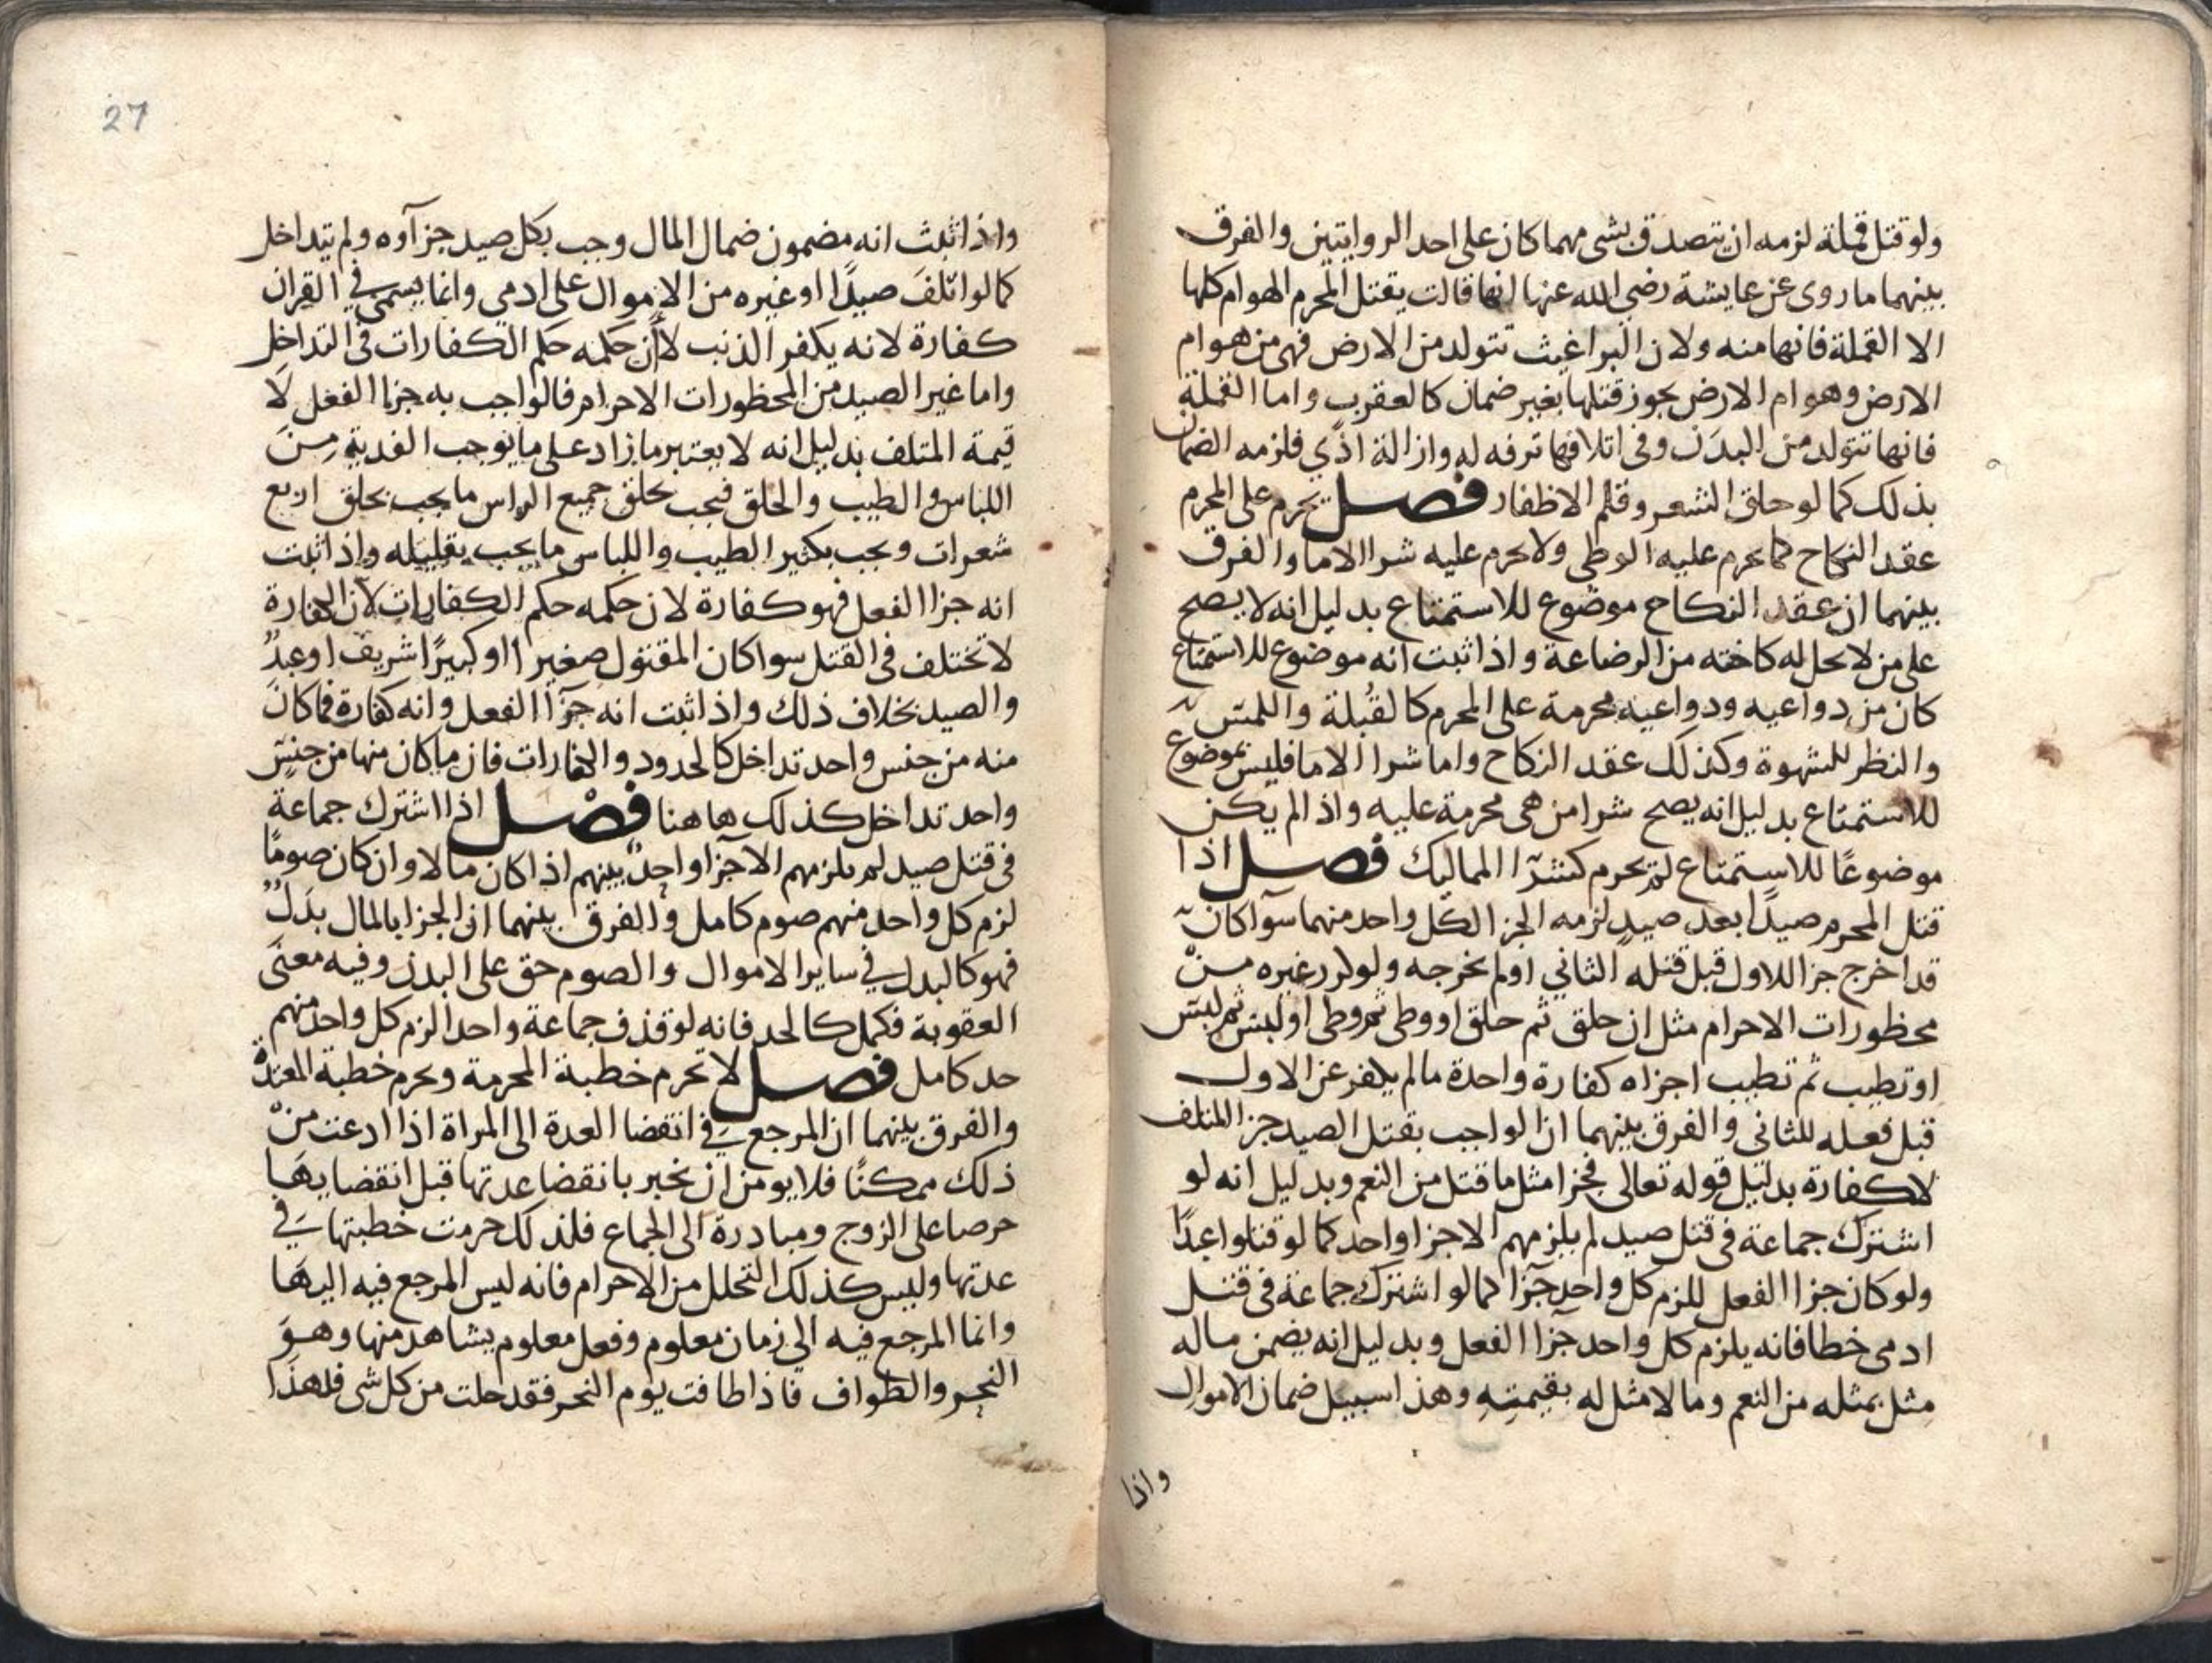 ولو قتل قملة لزمه ان يتصدق بشي مهما كان على احد الروايتين والفرق
بينهما ما روى عن عايشة رضي الله عنها انها قالت يقتل المحرم الهوام كلها
الا القملة فانها منه ولان البراغيث تتولد من الارض فهي من هوام
الارض وهوام الارض يجوز قتلها بغير ضمان كالعقرب واما القملة
فانها تتولد من البدن وفي اتلافها ترفه له وازالة اذًي فلزمه الضمان
بذلك كما لو حلق الشعر وقلم الاظفار فصل يحرم على المحرم
عقد النكاح كما يحرم عليه الوطي ولا يحرم عليه شرا الاما والفرق
بينهما ان عقد النكاح موضوع للاستمتاع بدليل انه لا يصح
على من لا يحل له كاخته من الرضاعة واذا ثبت انه موضوع للاستمتاع
كان من دواعيه ودواعيه محرمة على المحرم كالقُبلة واللمس
والنظر للشهوة وكذلك عقد النكاح واما شرا الاما فليس بموضوع
للاستمتاع بدليل انه يصح شرا من هي محرمة عليه واذا لم يكن
موضوعًا للاستمتاع لم يحرم كشرآ المماليك فصل اذا
قتل المحرم صيدًا بعد صيدٍ لزمه الجزا لكل واحد منهما سوآ كان
قد اخرج جزا للاول قبل قتله الثاني او لم يخرجه ولو كرر غيره من
محظورات الاحرام مثل ان حلق ثم حلق او وطى ثم وطى او لبس ثم لبس
او تطيب ثم تطيب اجزاه كفارة واحدة ما لم يكفر عن الاول
قبل فعله للثاني والفرق بينهما ان الواجب بقتل الصيد جزا المتلف
لا كفارة بدليل قوله تعالى فجزا مثل ما قتل من النعم وبدليل انه لو
اشترك جماعة في قتل صيد لم يلزمهم الا جزا واحد كما لو قتلوا عبدًا
ولو كان جزا الفعل للزم كل واحد جزآ كما لو اشترك جماعة في قتل
ادمى خطا فانه يلزم كل واحد جزآ الفعل وبدليل انه يضمن ما له
مثل بمثله من النعم وما لا مثل له بقيمته وهذا سبيل ضمان الاموال
واذا
27
واذا ثبت انه مضمون ضمال المال وجب بكل صيد جزآوه ولم يتداخل
كما لو اتلف صيدًا او غيره من الاموال على ادمى وانما يسمى في القران
كفارة لانه يكفر الذنب لا أن حكمه حكم الكفارات في التداخل
واما غير الصيد من المحظورات الاحرام فالواجب به جزا الفعل لا
قيمة المتلف بدليل انه لا يعتبر ما زاد على ما يوجب الفدية من
اللباس والطيب والحلق فيجب بحلق جميع الراس ما يجب بحلق اربع
شعرات ويجب بكثير الطيب واللباس ما يجب بقليله واذا ثبت
انه جزا الفعل فهو كفارة لان حكمه حكم الكفارات لان الكفارة
لا تختلف في القتل سوا كان المقتول صغيرا او كبيرًا شريف او عبدٌ
والصيد بخلاف ذلك واذا ثبت انه جزآ الفعل وانه كفارة فما كان
منه من جنس واحد تداخل كالحدود والكفارات فان ما كان منها من جنس
واحد تداخل كذلك هاهنا فصل اذا اشترك جماعة
في قتل صيد لم يلزمهم الا جزا واحدٌ بينهم اذا كان مالا وان كان صومًا
لزم كل واحد منهم صوم كامل والفرق بينهما ان الجزا بالمال بدلٌ
فهو كالبدل في ساير الاموال والصوم حق على البدن وفيه معنًى
العقوبة فكمل كالحد فانه لو قذف جماعة واحدا لزم كل واحد منهم
حد كامل فصل لا تحرم خطبة المحرمة ويحرم خطبة المعتدة
والفرق بينهما ان المرجع في انقضا العدة الى المراة اذا ادعت من
ذلك ممكنًا فلا يومن ان تخبر بانقضا عدتها قبل انقضايها
حرصا على الزوج ومبادرة الى الجماع فلذلك حرمت خطبتها في
عدتها وليس كذلك التحلل من الاحرام فانه ليس المرجع فيه اليها
وانما المرجع فيه الى زمان معلوم وفعل معلوم يشاهد منها وهو
النحر والطواف فاذا طافت يوم النحر فقد حلت من كل شى فلهذا